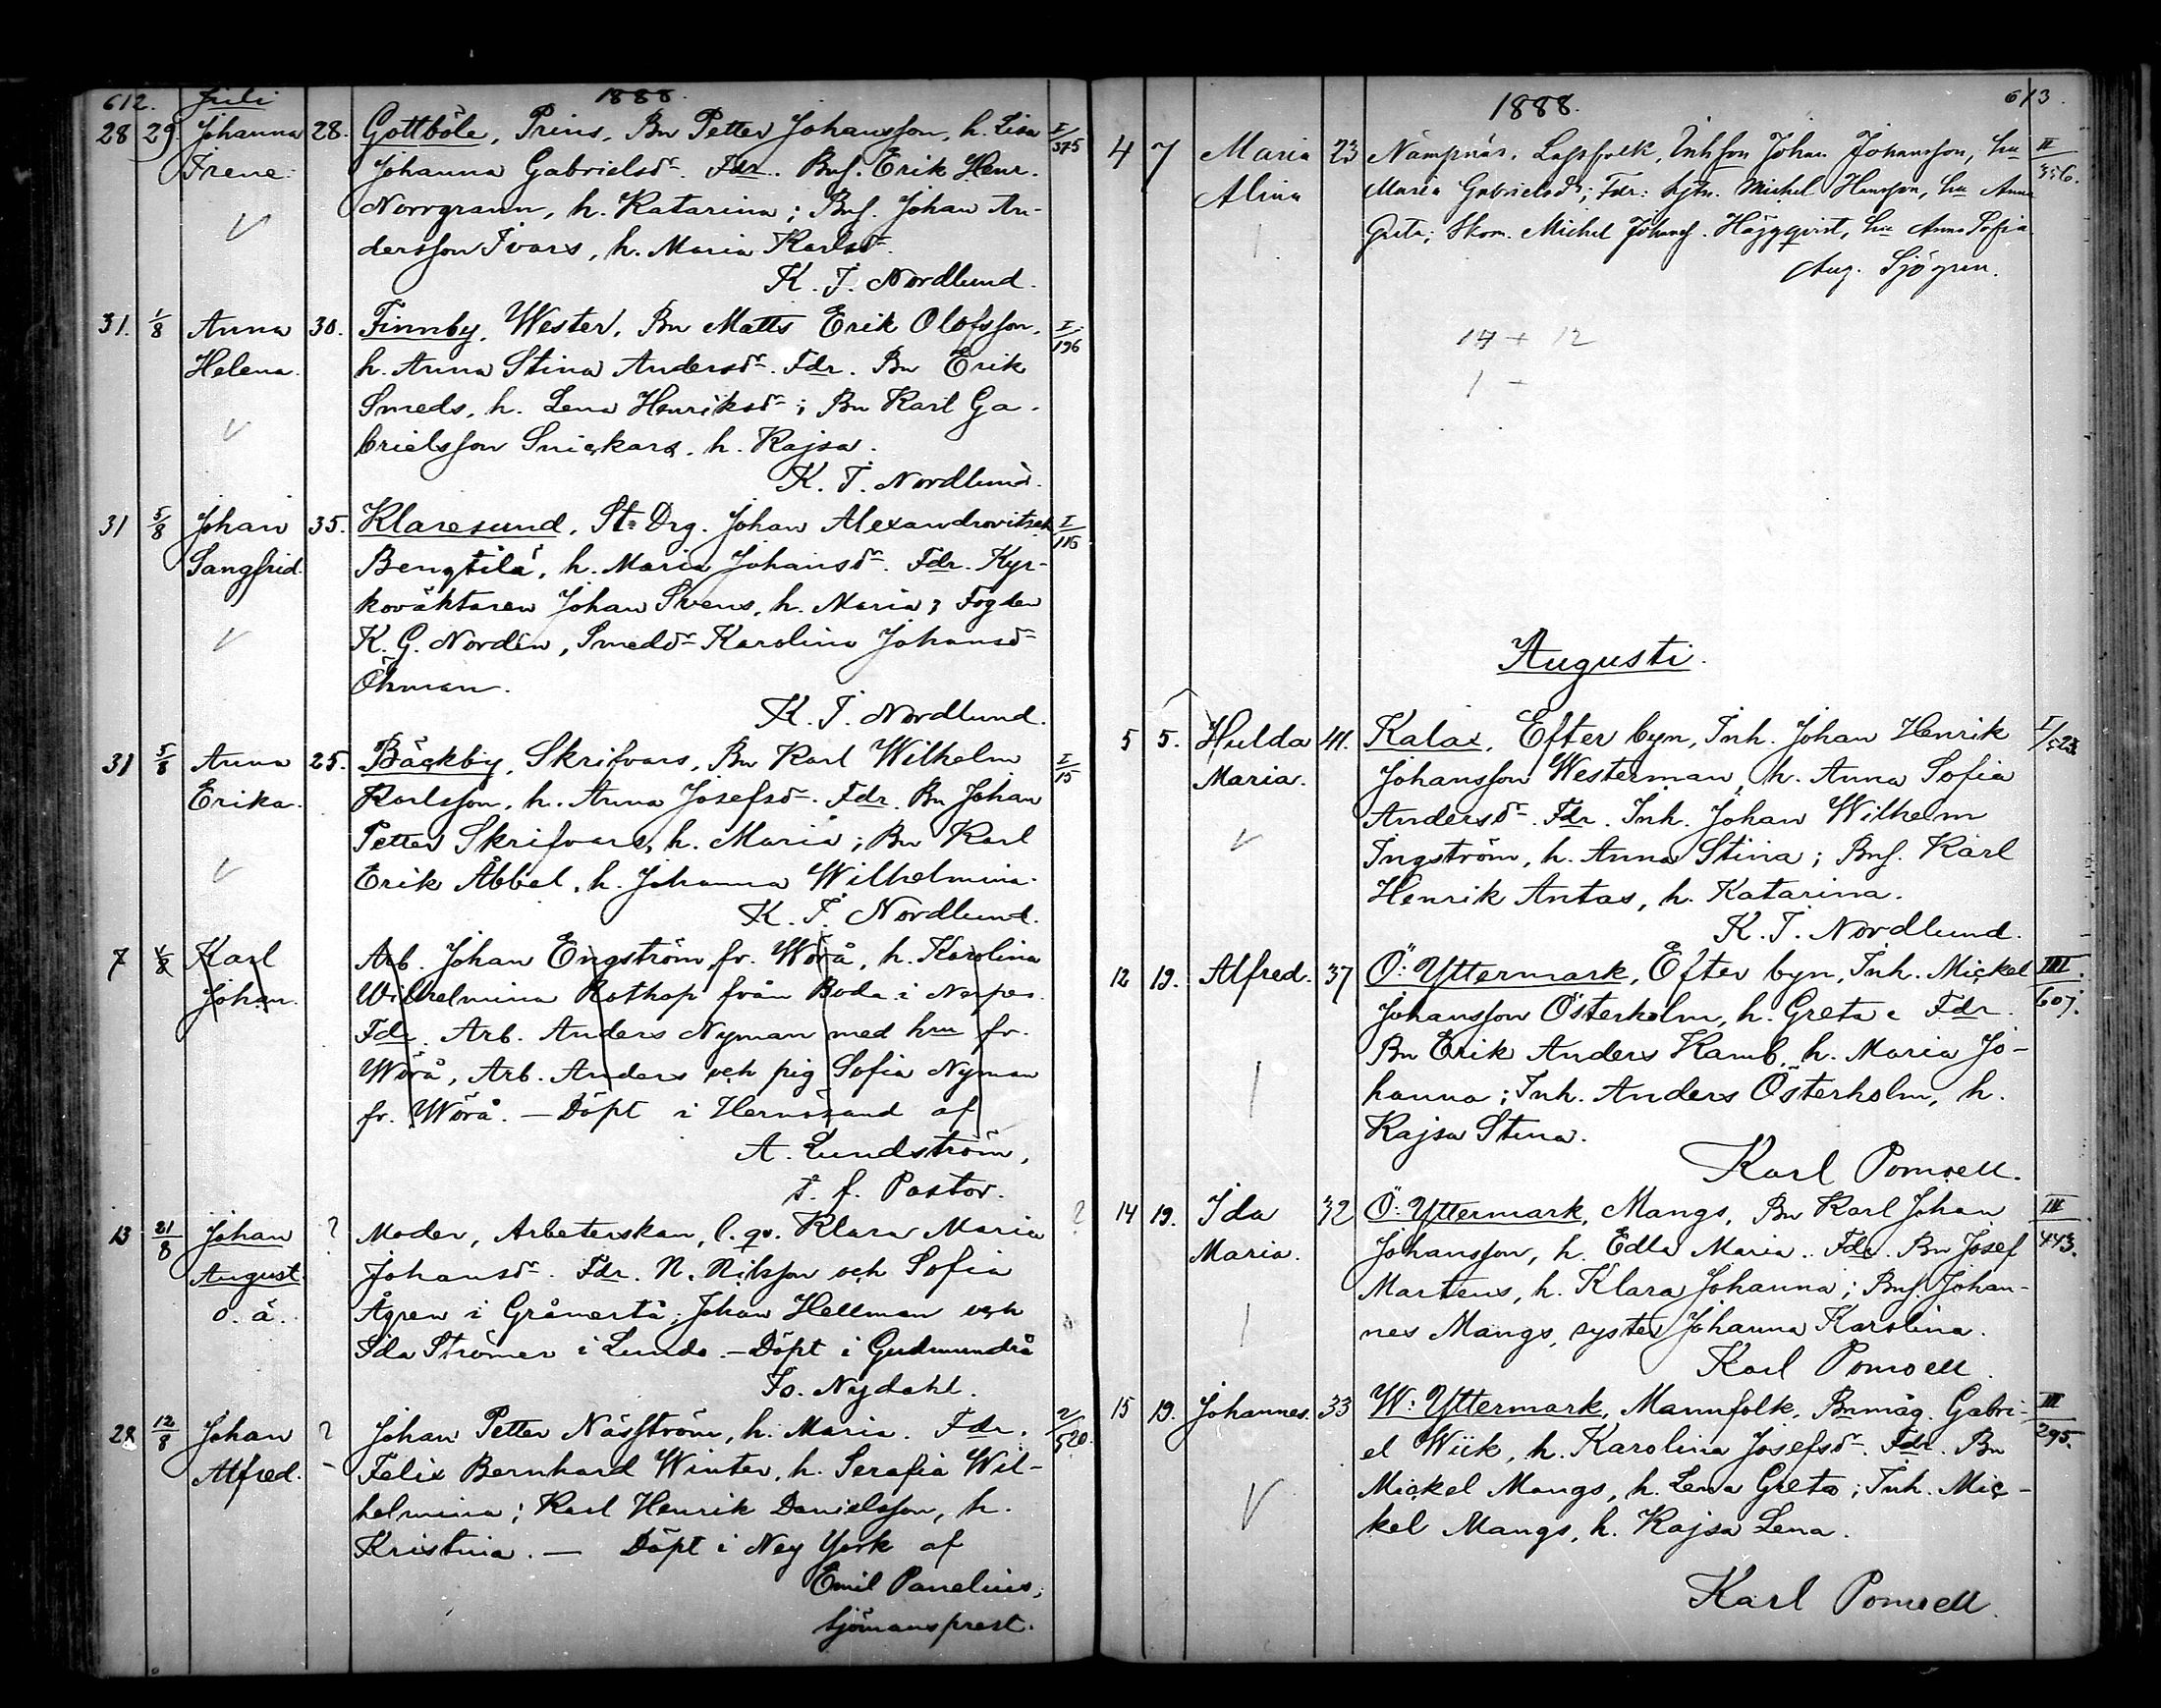 612. Juli 1888.
28 29 Johanna 28. Gottböle, Prins, Bn Petter Johansson, h. Lisa I/375
Irene. Johanna Gabrielsdr. Fdr. Bnf. Erik Henr.
Norrgrann, h. Katarina; Bnf. Johan An-
dersson Ivars, h. Maria Karlsdr.
K. J. Nordlund.
31. 1/8 Anna 30. Finnby, Wester, Bn Matts Erik Olofsson, I/196
Helena. h. Anna Stina Andersdr. Fdr. Bn Erik
Smeds, h. Lena Henriksdr; Bn Karl Ga-
brielsson Snickars, h. Kajsa.
K. J. Nordlund.
31 5/8 Johan 35. Klaresund, St: Drg. Johan Alexandrovitsch I/115
Sangfrid. Bengtilä, h. Maria Johansdr. Fdr. Kyr-
koväktaren Johan Svens, h. Maria; Fogden
K. G. Nordin, Smedsdr Karolina Johansdr
Öhman.
K. J. Nordlund.
31 5/8 Anna 25. Bäckby, Skrifvars, Bn Karl Wilhelm I/15
Erika. Karlsson, h. Anna Josefsdr. Fdr. Bn Johan
Petter Skrifvars, h. Maria; Bn Karl
Erik Åbbel, h. Johanna Wilhelmina.
K. J. Nordlund.
7 Karl Arb. Johan Engström fr. Wörå, h. Karolina
Johan. Wilhelmina Rothop från Böda i Nerpes.
Fdr. Arb. Anders Nyman med hru fr.
Wörå, Arb. Anders och pig. Sofia Nyman
fr. Wörå. — Döpt i Hernösand af
A. Lundström,
t. f. Pastor.
13 21/8 Johan ? Moder, Arbeterskan, l. qv. Klara Maria ?
August Johansdr. Fdr. N. Nilsson och Sofia
o. ä. Ågren i Grånertå; Johan Hellman och
Ida Strömer i Lunde. — Döpt i Gudmundrå
Jo. Nydahl.
28 12/8 Johan ? Johan Petter Näsström, h. Maria. Fdr. 2/520.
Alfred. Felix Bernhard Winter, h. Serafia Wil-
helmina; Karl Henrik Danielsson, h.
Kristina. — Döpt i Ney York af
Emil Panelius,
Sjömansprest.
1888. 613.
4 7 Maria 23 Nämpnäs, Lassfolk, Inhson Johan Johansson, hu II/356.
Alina Maria Gabrielsdr; Fdr: Sjm. Michel Hansson, hu Anna
Greta; Skom. Michel Johans. Häggqvist, hu Anna Sofia
Aug. Sjögren.
14 + 12
1 -
Augusti.
5 5. Hulda 41. Kalax, Efter byn, Inh. Johan Henrik
Maria. Johansson Westerman, h. Anna Sofia
Andersdr. Fdr. Inh. Johan Wilhelm
Ingström, h. Anna Stina; Bnf. Karl
Henrik Antas, h. Katarina.
K. J. Nordlund.
12 19. Alfred. 37 Ö: Yttermark, Efter byn, Inh. Mickel III/607.
Johansson Österholm, h. Greta. Fdr.
Bn Erik Anders Kamb, h. Maria Jo-
hanna; Inh. Anders Österholm, h.
Kajsa Stina.
Karl Pomoell.
14 19. Ida 32 Ö: Yttermark, Mangs, Bn Karl Johan III/443.
Maria. Johansson, h. Edla Maria. Fdr. Bn Josef
Martens, h. Klara Johanna; Bnf. Johan-
nes Mangs, syster Johanna Karolina.
Karl Pomoell.
15 19. Johannes. 33 W: Yttermark, Mannfolk, Bnmåg. Gabri- III/295.
el Wiik, h. Karolina Josefsdr. Fdr. Bn
Mickel Mangs, h. Lena Greta; Inh. Mic-
kel Mangs, h. Kajsa Lena.
Karl Pomoell.